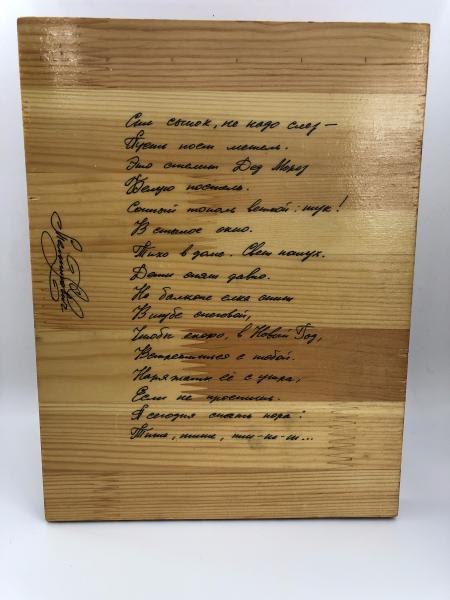 Спи сынок, не надо слез –
Пусть поет метель.
Это стелит Дед Мороз
Белую постель.
Сонный тополь веткой: тук!
В стылое окно.
Тихо в доме. Свет потух.
Дети спят давно.
На балконе елка спит
В шубе снеговой,
Чтобы скоро, в Новый Год,
Встретиться с тобой.
Наряжать её с утра,
Если не проспишь.
А сегодня спать пора!
Тише, тише, тш-ш-ш...